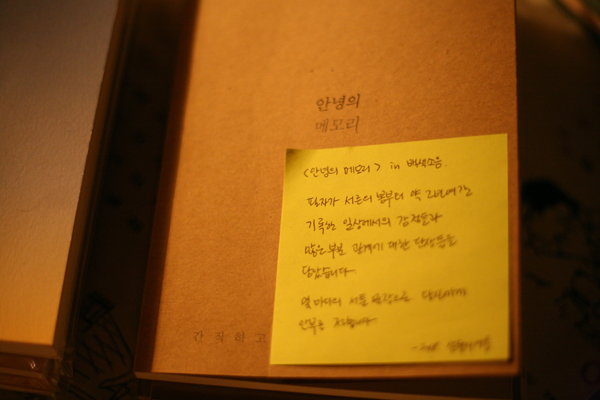 안녕의
메모리
<안녕의 메모리> in 백색소음.
필자가 서른의 봄부터 약 2년여간
기록한 일상에서의 감정들과
많은 부분 관계에 대한 단상들을
담았습니다.
몇 마디의 서툰 문장으로
안부를 전합니다.
간직하고